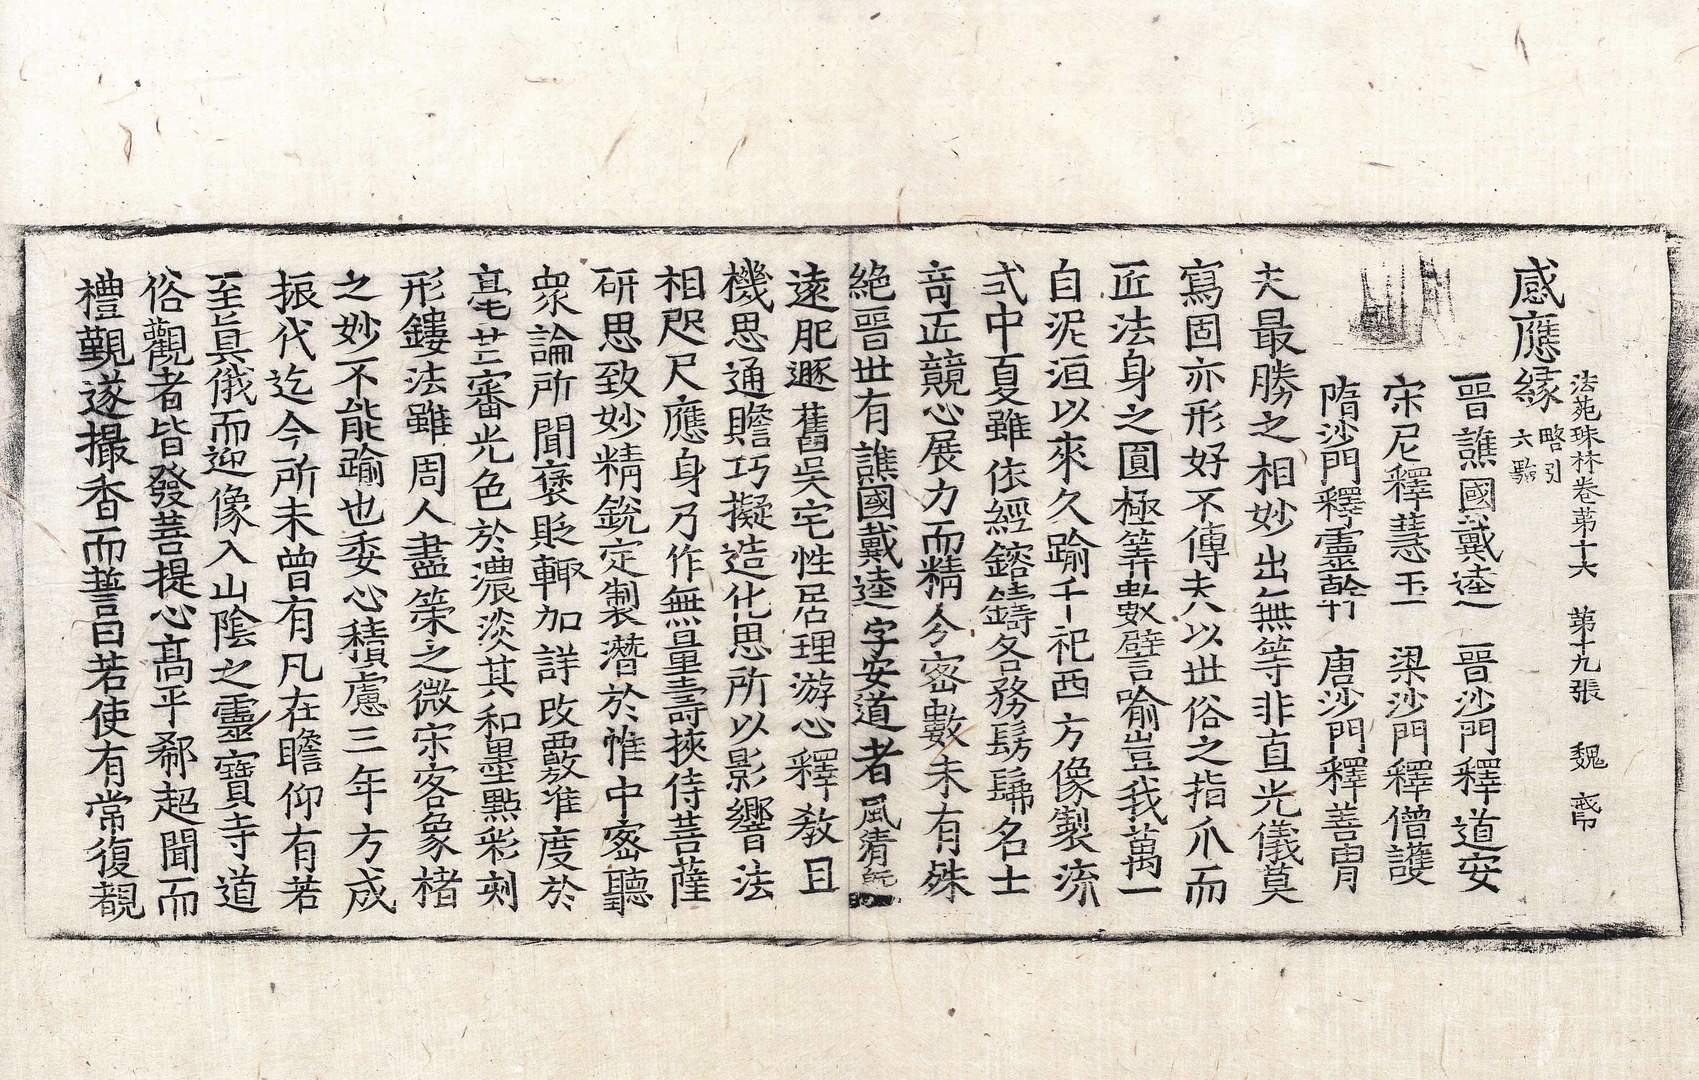 法苑珠林卷苐十六 第十九張 魏
感應緣 略引六驗
晉譙國戴逵 晉沙門釋道安
宋尼釋慧玉 梁沙門釋僧護
隋沙門釋靈幹 唐沙門釋善冑
夫最勝之相妙出無等非直光儀莫
寫固亦形好不傳夫以世俗之指爪而
匠法身之圓極筭數譬喻豈我萬一
自泥洹以來久踰千祀西方像製流
式中夏雖依經鎔鑄各務髣髴名士
竒匠競心展力而精今密數未有殊
絶晉世有譙國戴逵字安道者風清
遠肥遯舊吳宅性居理游心釋教且
機思通贍巧擬造化思所以影響法
相咫尺應身乃作無量壽挾侍菩薩
研思致妙精銳定製潛於帷中密聽
衆論所聞褒貶輙加詳改覈准度於
毫芒審光色於濃淡其和墨點彩刻
形鏤法雖周人盡策之微宋客象楮
之妙不能踰也委心積慮三年方成
振代迄今所未曾有凡在瞻仰有若
至眞俄而迎像入山陰之靈寶寺道
俗觀者皆發菩提心髙平郗超聞而
禮觀遂撮香而誓曰若使有常復覩